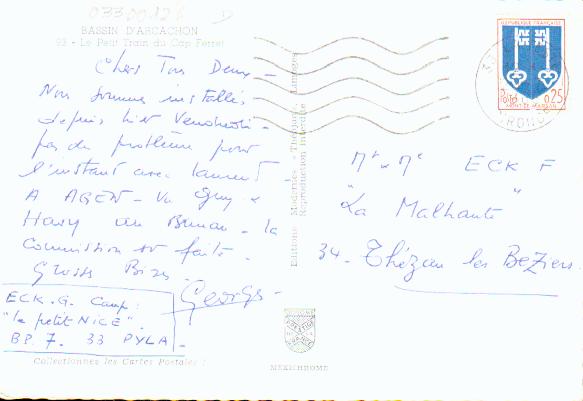 BASSIN D'ARCACHON
93 - Le Petit Train du Cap Ferret
Chers Tous Deux -
Nous sommes installés
depuis hier Vendredi -
pas de problème pour
l'instant avec Laurent
A AGEN - Vu Guy &
au Bureau - la
Commission est faite.
Grosses Bises
Georges
ECK. G. Camp:
"le petit NICE".
BP. 7. 33 PYLA.
Collectionnez les Cartes Postales :
Reproduction Interdite
MEXICHROME
REPUBLIQUE FRANÇAISE
Postes 0,25
MONT-DE-MARSAN
Mr & Me ECK F
"La Malhaute"
34 - Thézan les Beziers.